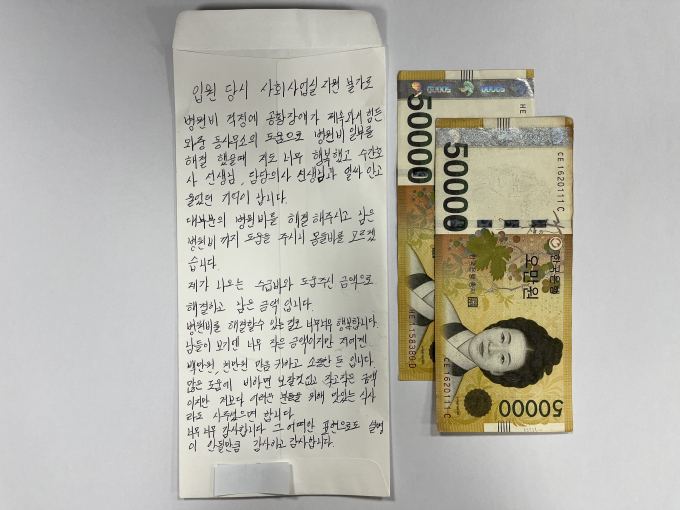 입원 당시 사회사업실 지원 불가로
병원비 걱정에 공황장애가 찾아와서 힘든
와중 동사무소의 도움으로 병원비 일부를
해결 했을때 저도 너무 행복했고 수간호
사 선생님, 담당의사 선생님과 얼싸 안고
울었던 기억이 납니다.
대부분의 병원비를 해결해주시고 남은
병원비 까지 도움을 주시니 몸둘바를 모르겠
습니다.
제가 나오는 수급비와 도움주신 금액으로
해결하고 남은 금액 입니다.
병원비를 해결할수 있는 걸로 너무너무 행복합니다.
남들이 보기엔 너무 작은 금액이지만 저에겐
백만원, 천만원 만큼 커다랗고 소중한 돈 입니다.
많은 도움에 비하면 보잘것없고 작고작은 금액
이지만 저보다 어려운 분들을 위해 맛있는 식사
라도 사주셨으면 합니다.
너무너무 감사합니다 그 어떠한 표현으로도 설명
이 안될만큼 감사하고 감사합니다.
50000
50000
HE 1158389 D
50000
CE 1620111 C
한국은행
오만원
한국은행 총재
CE 1620111 C
50000